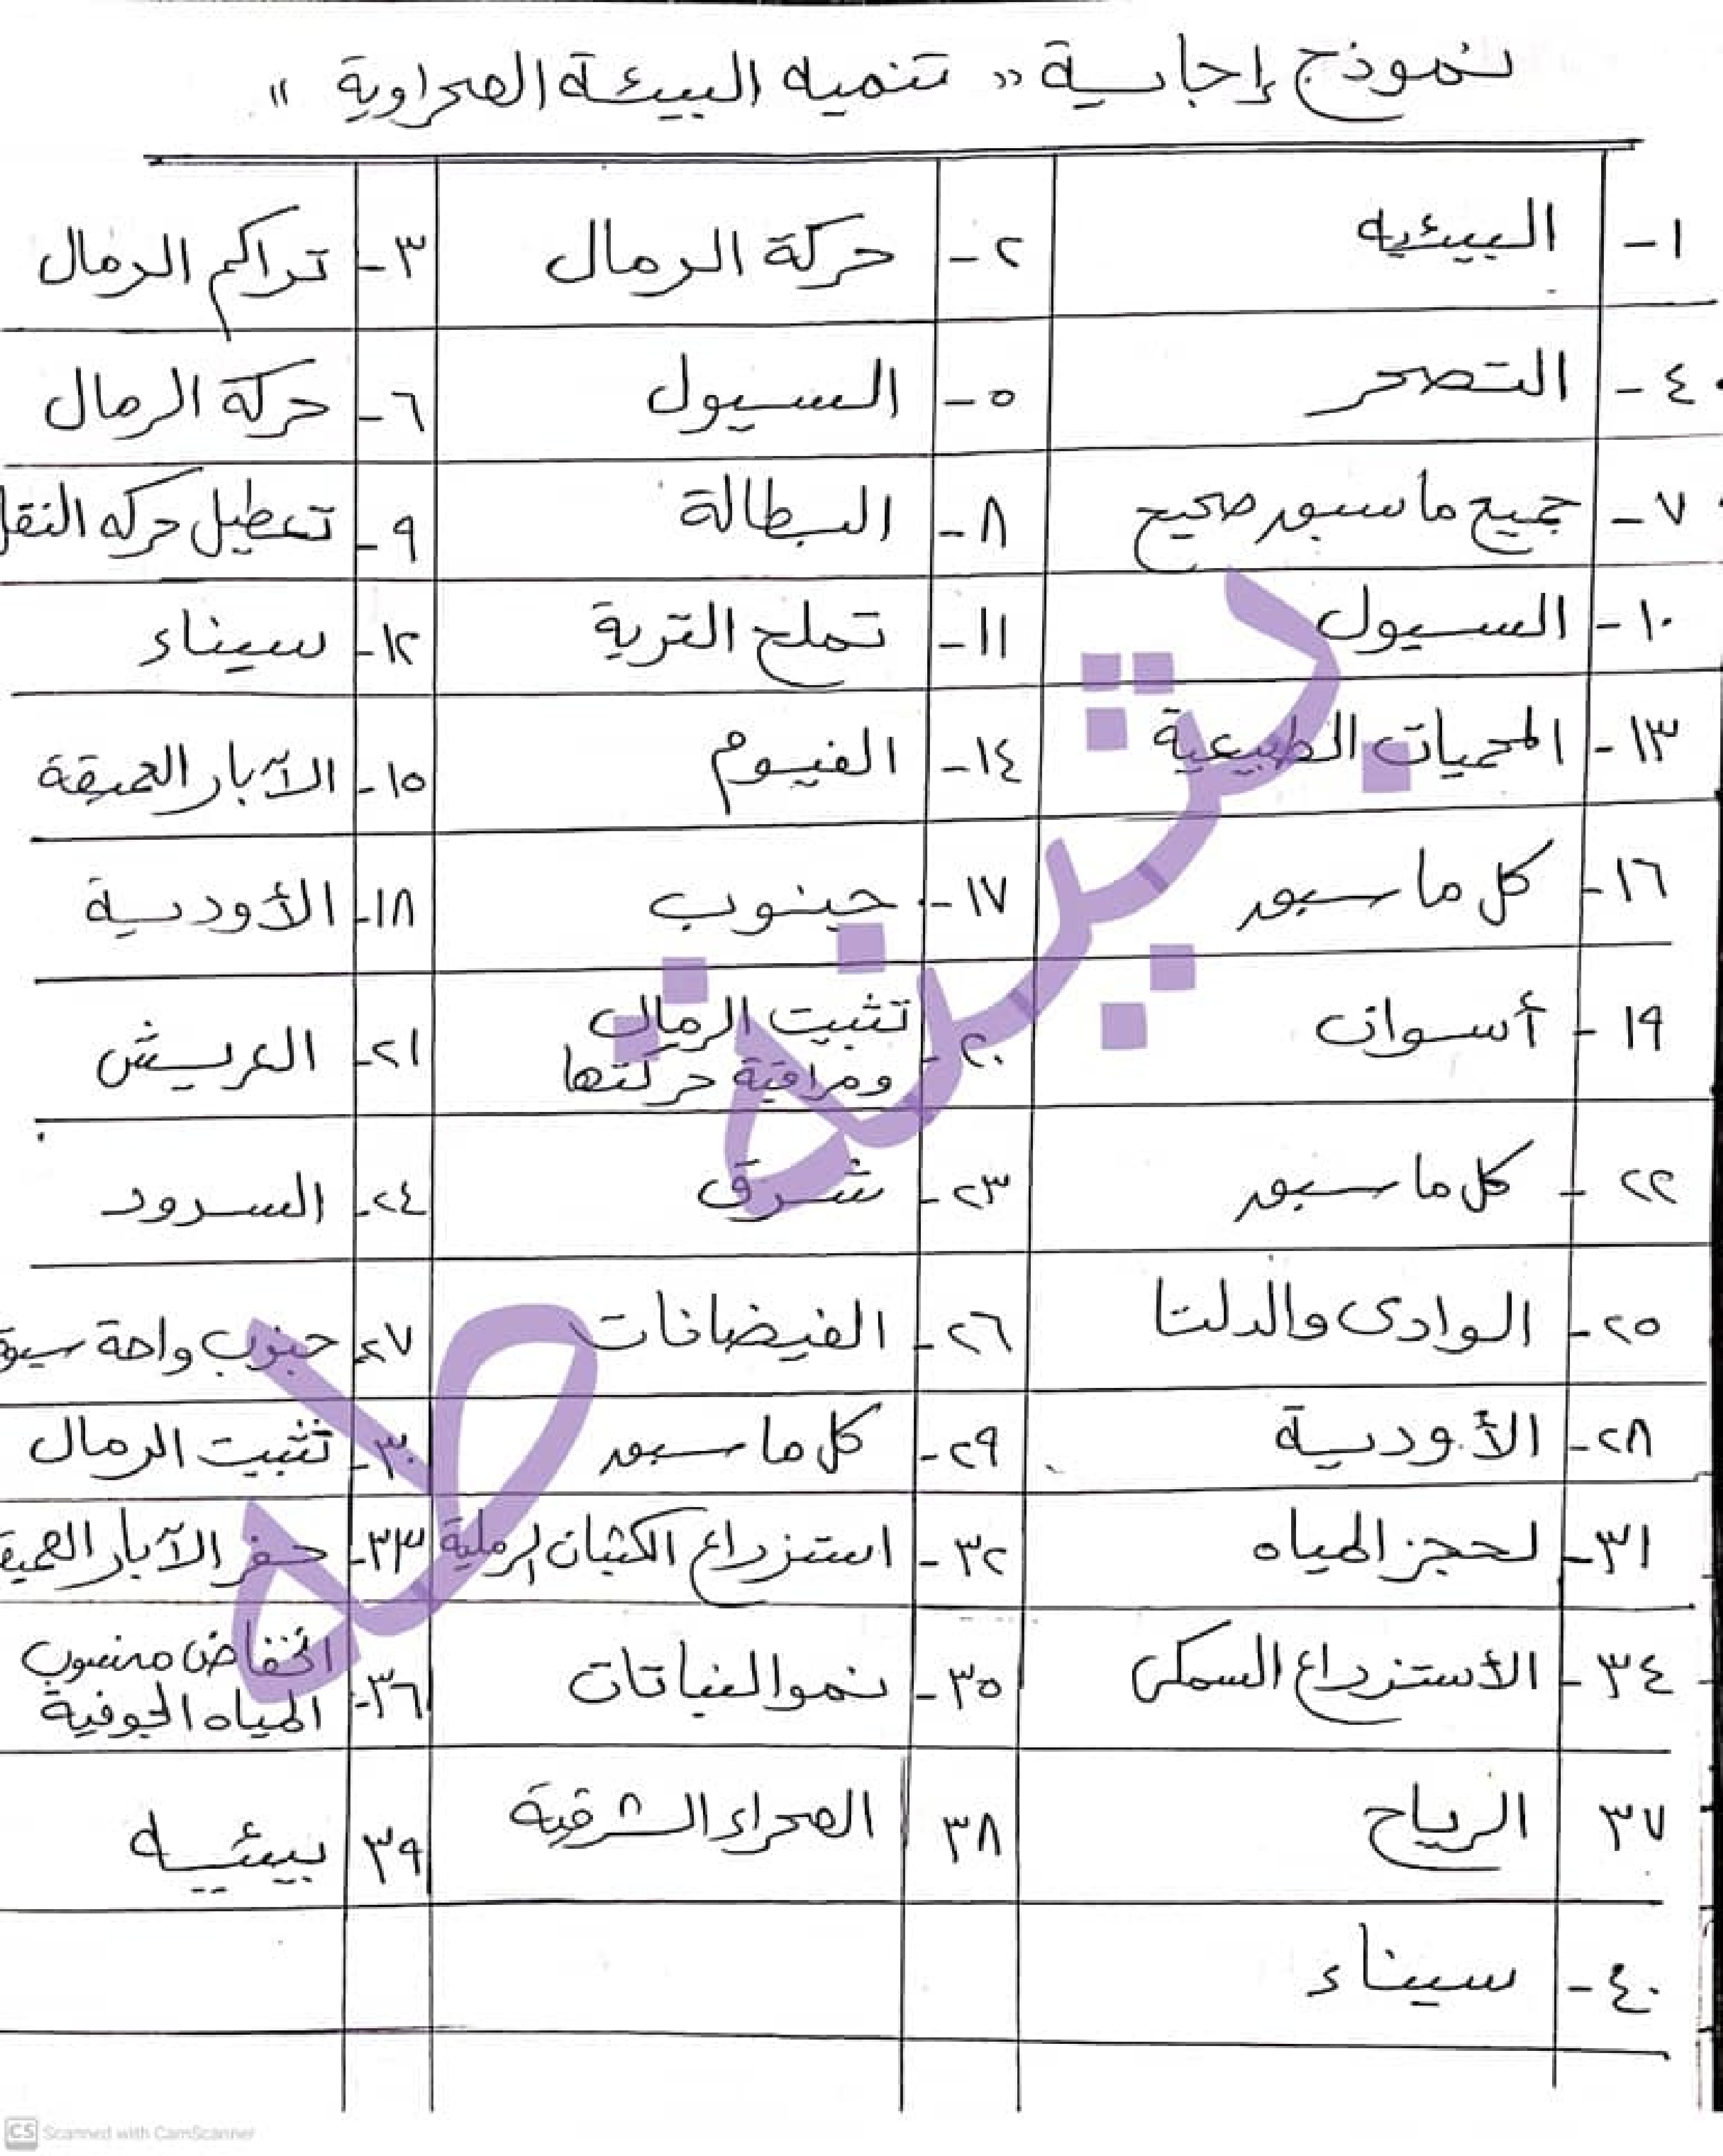 نموذج إجابة " تنميه البيئة الصحراوية "
١- البيئيه
٢- حركة الرمال
٣- تراكم الرمال
٤- التصحر
٥- السيول
٦- حركة الرمال
٧- جميع ما سبق صحيح
٨- البطالة
٩- تعطيل حركه النقل
١٠- السيول
١١- تملح التربة
١٢- سيناء
١٣- المحميات الطبيعية
١٤- الفيوم
١٥- الآبار العميقة
١٦- كل ما سبق
١٧- جنوب
١٨- الأودية
١٩- أسوان
٢٠- تثبيت الرمال
ومراقبة حركتها
٢١- العريش
٢٢- كل ما سبق
٢٣- شرق
٢٤- السدود
٢٥- الوادى والدلتا
٢٦- الفيضانات
٢٧- جنوب واحة سيوة
٢٨- الأودية
٢٩- كل ما سبق
٣٠- تثبيت الرمال
٣١- لحجز المياه
٣٢- استزراع الكثبان الرملية
٣٣- حفر الآبار العميقة
٣٤- الأستزراع السمكى
٣٥- نمو النباتات
٣٦- انخفاض منسوب
المياه الجوفية
٣٧ الرياح
٣٨ الصحراء الشرقية
٣٩ بيئيه
٤٠- سيناء
CS Scanned with CamScanner